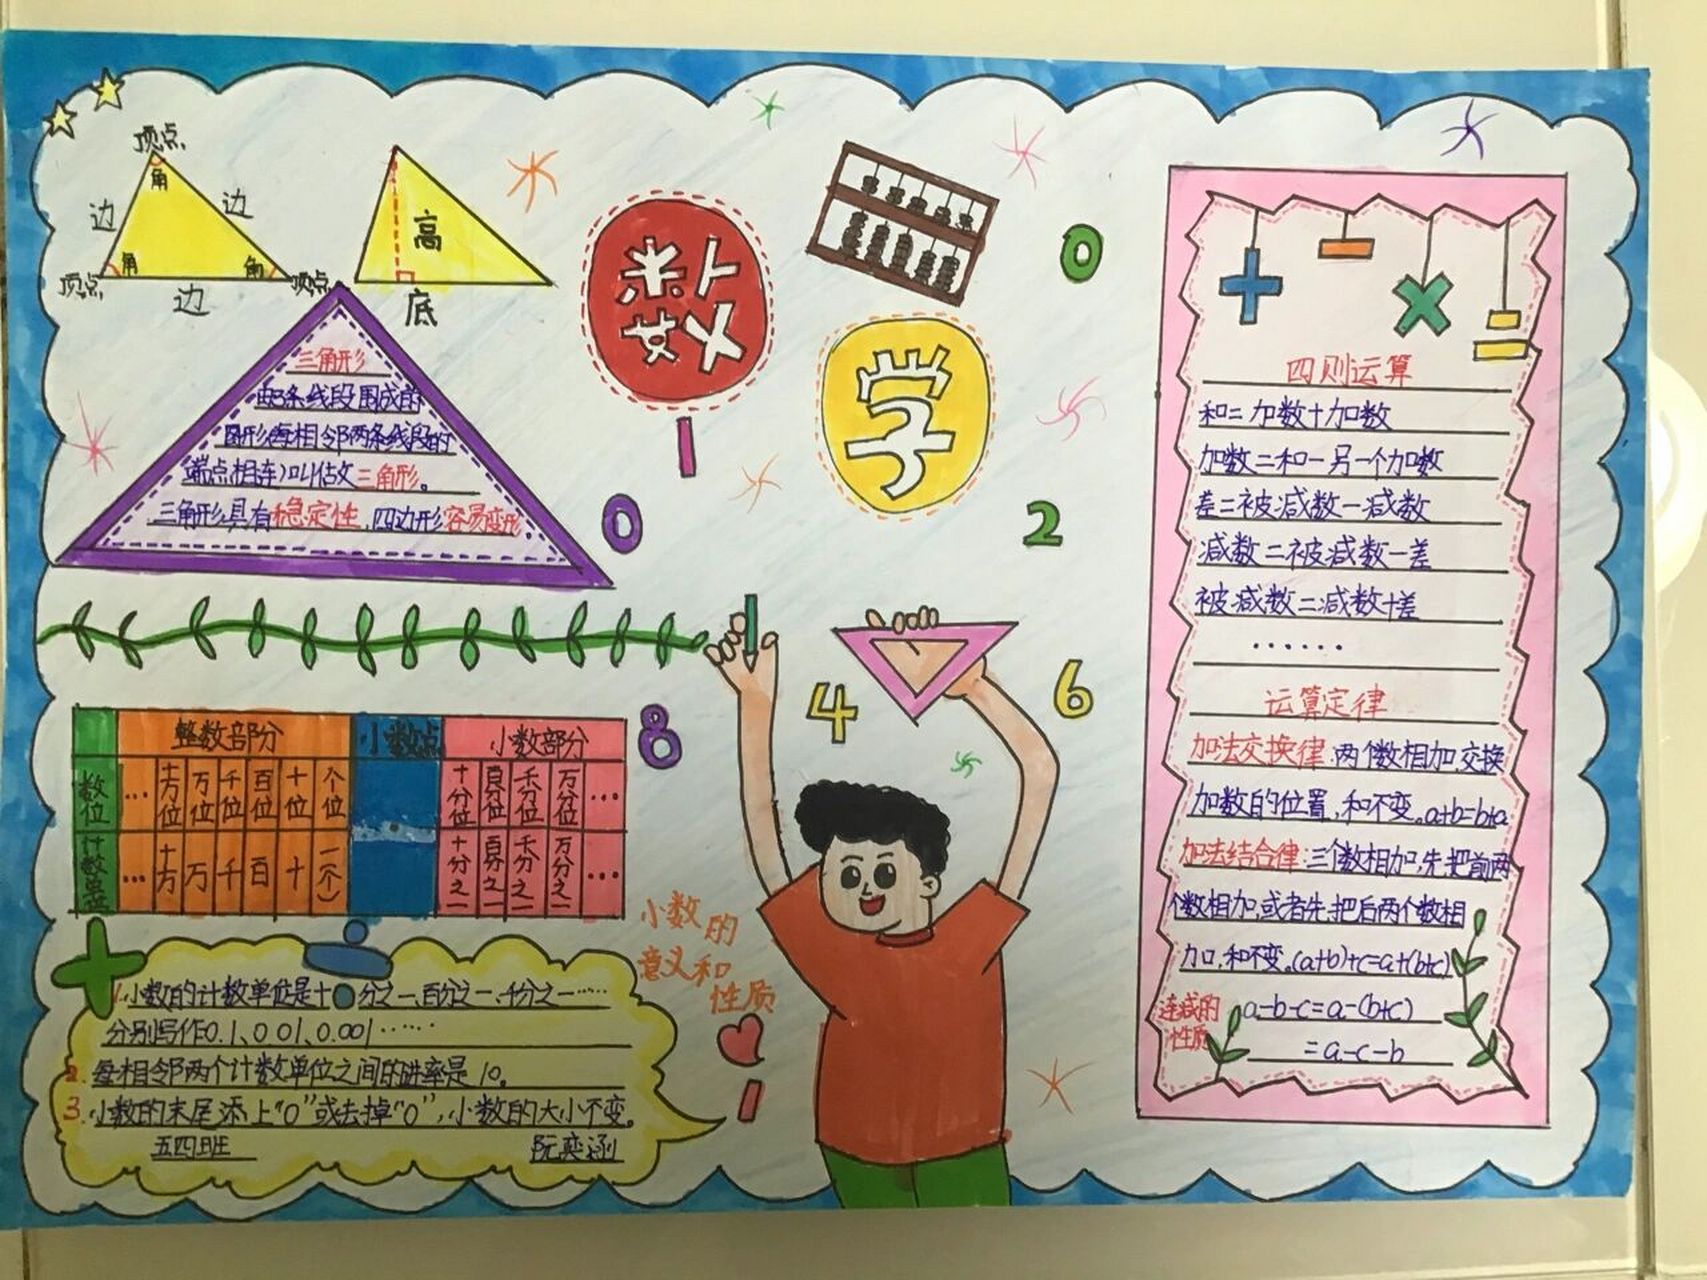 顶点
角
边
边
角
角
顶点
顶点
边
高
底
数
学
三角形
由3条线段围成的
图形(每相邻两条线段的
端点相连)叫做三角形。
三角形具有稳定性,四边形容易变形
1
0
0
2
4
6
8
整数部分 小数点 小数部分
数位 … 十万位 万位 千位 百位 十位 个位 十分位 百分位 千分位 万分位 …
计数单位 … 十万 万 千 百 十 一(个) 十分之一 百分之一 千分之一 万分之一 …
小数的
意义和
性质
1.小数的计数单位是十分之一、百分之一、千分之一……
分别写作0.1、0.01、0.001……
2.每相邻两个计数单位之间的进率是10。
3.小数的末尾添上“0”或去掉“0”,小数的大小不变。
五四班 阮奕涵
+ − × =
四则运算
和=加数+加数
加数=和-另一个加数
差=被减数-减数
减数=被减数-差
被减数=减数+差
……
运算定律
加法交换律:两个数相加,交换
加数的位置,和不变。a+b=b+a
加法结合律:三个数相加,先把前两
个数相加,或者先把后两个数相
加,和不变。(a+b)+c=a+(b+c)
连减的性质 a-b-c=a-(b+c)
=a-c-b